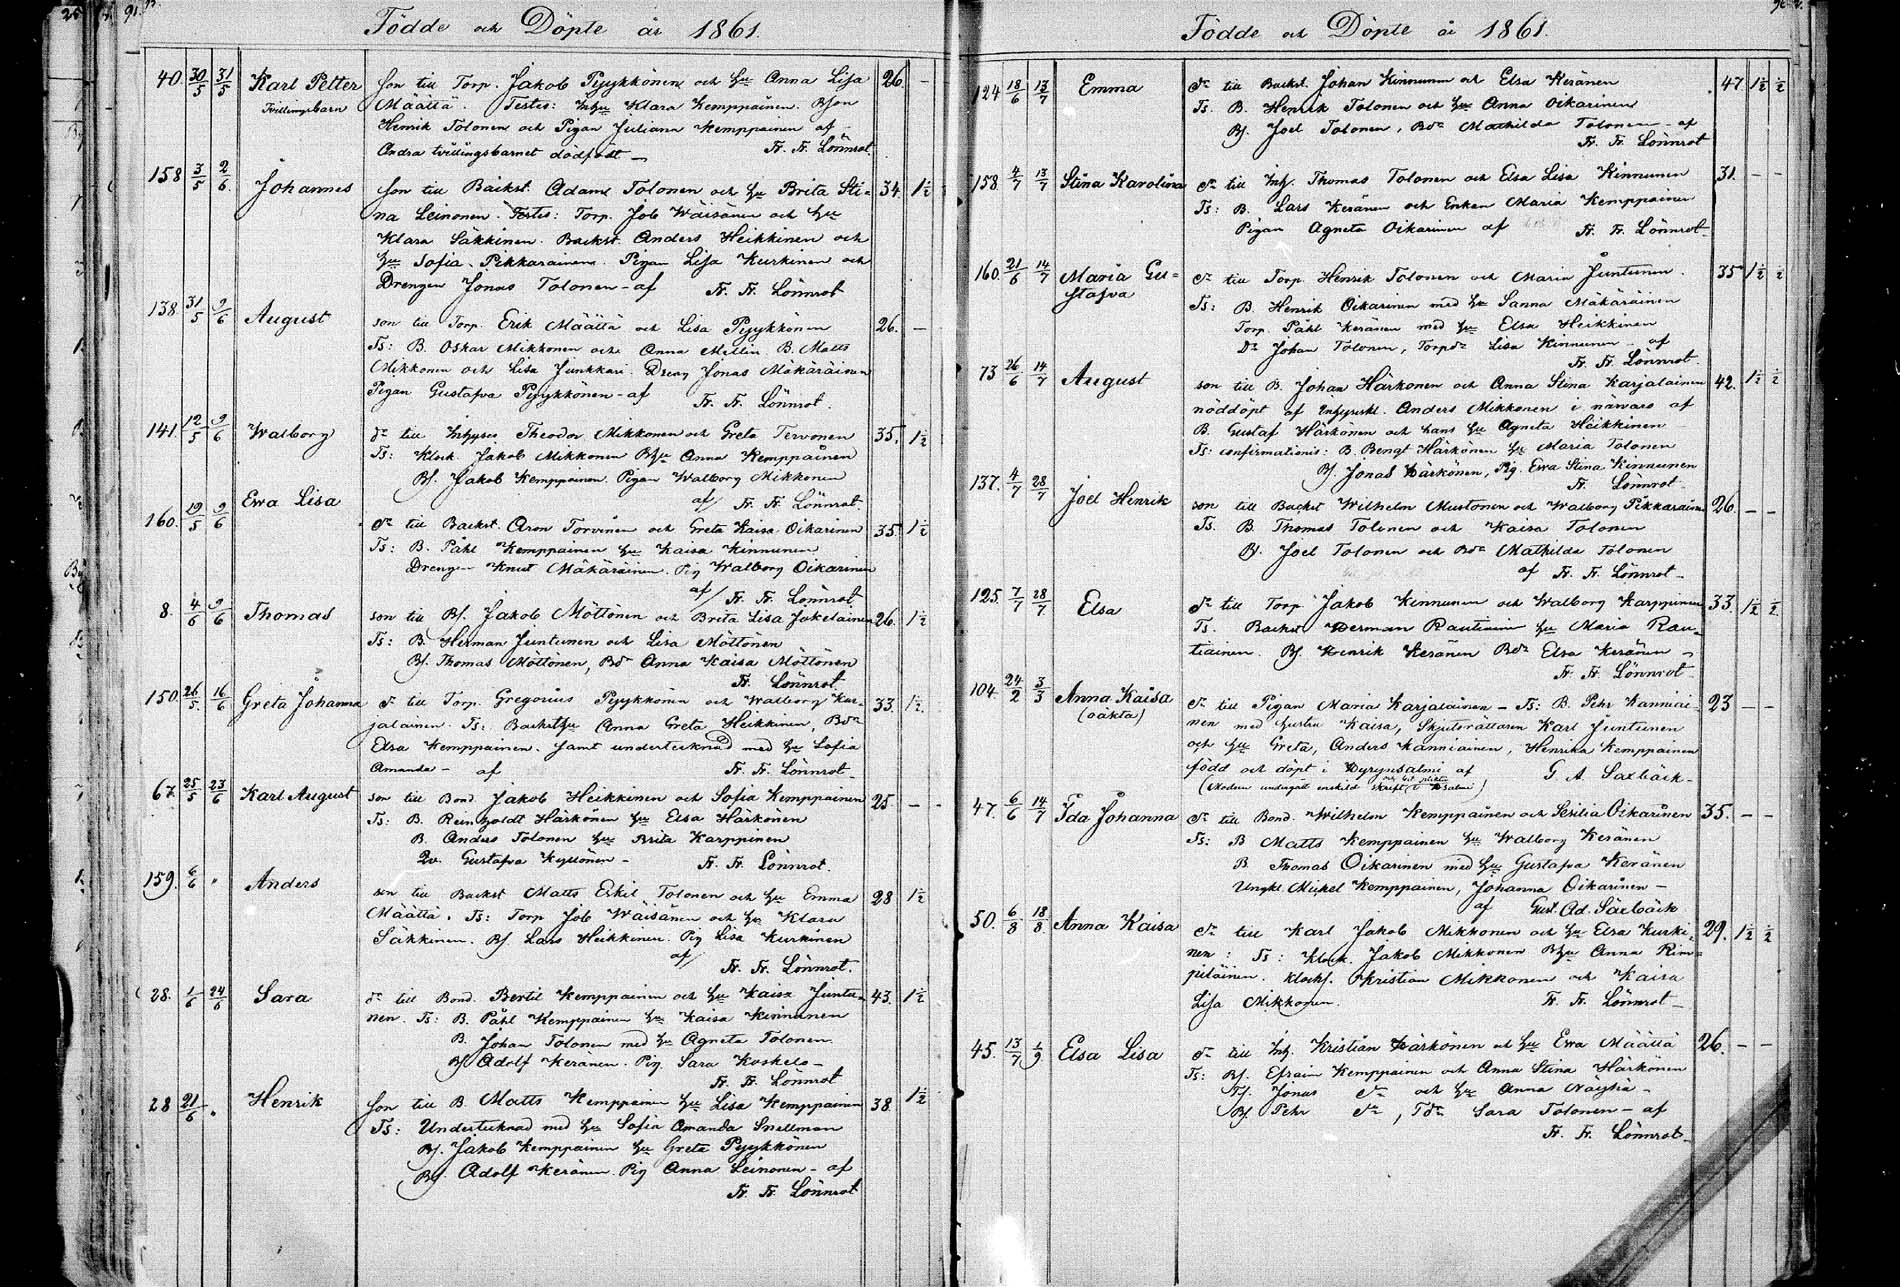 Födde och Döpte år 1861.
40 30/5 31/5 Karl Petter son till Torp. Jakob Pyykkönen och hu Anna Lisa 26. –
Tvillingsbarn Määttä. Testes: Inhu Klara Kemppainen. Bson
Henrik Tolonen och Pigan Juliana Kemppainen af
Andra tvillingsbarnet dödfödt – Fr. Fr. Lönnrot.
158 3/5 2/6 Johannes son till Backst. Adam Tolonen och hu Brita Sti- 34. 1½
na Leinonen. Testes: Torp. Job Wäisänen och hu
Klara Säkkinen. Backst. Anders Heikkinen och
hu Sofia Pikkarainen. Pigan Lisa Kurkinen och
Drengen Jonas Tolonen – af Fr. Fr. Lönnrot
138. 31/5 9/6 August son till Torp. Erik Määttä och Lisa Pyykkönen 26. –
Ts: B. Oskar Mikkonen och Anna Mellin B. Matts
Mikkonen och Lisa Junkkari. Dreng Jonas Mäkäräinen
Pigan Gustafva Pyykkönen – af Fr. Fr. Lönnrot.
141. 12/5 9/6 Walborg dr till Inhyses Theodor Mikkonen och Greta Tervonen 35. 1½
Ts: Klock. Jakob Mikkonen Bhu Anna Kemppainen
Bs. Jakob Kemppainen. Pigan Walborg Mikkonen
af Fr. Fr. Lönnrot.
160. 19/5 9/6 Ewa Lisa dr till Backst. Aron Torvinen och Greta Kaisa Oikarinen 35. 1½
Ts: B. Påhl Kemppainen hu Kaisa Kinnunen
Drengen Knut Mäkäräinen. Pig Walborg Oikarinen
af Fr. Fr. Lönnrot
8. 4/6 9/6 Thomas son till Bs. Jakob Möttönen och Brita Lisa Jokelainen 26. 1½
Ts: B. Herman Juntunen och Lisa Möttönen
Bs. Thomas Möttönen, Bdr Anna Kaisa Möttönen
Fr. Fr. Lönnrot.
150. 26/5. 16/6 Greta Johanna dr till Torp. Gregorius Pyykkönen och Walborg Kar- 33. 1½
jalainen. Ts: Backsthu Anna Greta Heikkinen, Bdr
Elsa Kemppainen. samt undertecknad med hu Sofia
Amanda – af Fr. Fr. Lönnrot –
67. 25/5 23/6 Karl August son till Bond. Jakob Heikkinen och Sofia Kemppainen 25 – –
Ts: B. Reinholdt Härkönen hu Elsa Härkönen
B. Anders Tolonen hu Brita Karppinen
Gustafva Kyllönen – Fr. Fr. Lönnrot.
159. 6/6 " Anders son till Backst Matts Eskil Tolonen och hu Emma 28 1½
Määttä. Ts: Torp Job Wäisänen och hu Klara
Säkkinen. Bs Lars Heikkinen. Pig Lisa Kurkinen
af
Fr. Fr. Lönnrot.
28. 1/6 24/6 Sara dr till Bond. Bertil Kemppainen och hu Kaisa Juntu- 43. 1½
nen. Ts: B. Påhl Kemppainen hu Kaisa Kinnunen
B. Johan Tolonen med hu Agneta Tolonen.
Bs Adolf Keränen. Pig Sara Koskelo –
Fr. Fr. Lönnrot
28 21/6 " Henrik son till B. Matts Kemppainen hu Lisa Kemppainen 38. 1½
Ts: Undertecknad med hu Sofia Amanda Snellman
Bs. Jakob Kemppainen hu Greta Pyykkönen
Bs. Adolf Keränen. Pig Anna Leinonen – af
Fr. Fr. Lönnrot
Födde och Döpte år 1861.
124 18/6 13/7 Emma dr till Backst. Johan Kinnunen och Elsa Keränen 47 1½ ½
Ts. B. Henrik Tolonen och hu Anna Oikarinen
Bs. Joel Tolonen, Bdr Mathilda Tolonen – af
Fr. Fr. Lönnrot
158. 4/7 13/7 Stina Karolina dr till Inh. Thomas Tolonen och Elsa Lisa Kinnunen 31. – –
Ts: B. Lars Keränen och Enkan Maria Kemppainen
Pigan Agneta Oikarinen af Fr. Fr. Lönnrot.
160. 21/6 14/7 Maria Gu- dr till Torp. Henrik Tolonen och Maria Juntunen. 35 1½ ½
stafva Ts: B. Henrik Oikarinen med hu Sanna Mäkäräinen
Torp. Påhl Keränen med hu Elsa Heikkinen
Dr Johan Tolonen, Torpdr Lisa Kinnunen – af
Fr. Fr. Lönnrot.
73 26/6 14/7 August son till B. Johan Härkönen och Anna Stina Karjalainen 42. 1½ ½
nöddöpt af Inhyseskl. Anders Mikkonen i närvaro af
B. Gustaf Härkönen och hans hu Agneta Heikkinen
Ts: confirmationis: B. Bengt Härkönen hu Maria Tolonen
Bs. Jonas Härkönen, Pig. Ewa Stina Kinnunen
Fr. Lönnrot
137. 4/7 28/7 Joel Henrik son till Backst Wilhelm Mustonen och Walborg Pikkarainen 26. – –
Ts. B. Thomas Tolonen och Kaisa Tolonen
Bs. Joel Tolonen och Bdr Mathilda Tolonen
af Fr. Fr. Lönnrot –
125. 7/7 28/7 Elsa dr till Torp Jakob Kinnunen och Walborg Karppinen 33. 1½ ½
Ts. Backst Herman Rautiain hu Maria Rau-
tiainen. Bs. Henrik Keränen Bdr Elsa Keränen –
Fr. Fr. Lönnrot
104. 24/2 3/3 Anna Kaisa dr till Pigan Maria Karjalainen – Ts: B. Pehr Kanniai- 23 – –
(oäkta) nen med hustru Kaisa, Skjutsrättaren Karl Juntunen
och hu Greta, Anders Kanniainen, Henrika Kemppainen
född och döpt i Hyrynsalmi af G. A. Saxbäck –
(Modern undergått enskild skrift i Hsalmi)
47. 6/6 14/7 Ida Johanna dr till Bond. Wilhelm Kemppainen och Sesilia Oikarinen 35. – –
Ts: B Matts Kemppainen hu Walborg Keränen
B Thomas Oikarinen med hu Gustafva Keränen
Ungkl. Mickel Kemppainen, Johanna Oikarinen –
af Gust. Ad. Saxbäck
50. 6/8 18/8 Anna Kaisa dr till Karl Jakob Mikkonen och hu Elsa Kurki- 29. 1½ ½
nen: Ts: Klock. Jakob Mikkonen Bhu Anna Rim-
piläinen. Klocks. Kristian Mikkonen och Kaisa
Lisa Mikkonen. Fr. Fr. Lönnrot –
45. 13/7 1/9 Elsa Lisa dr till Inh. Kristian Härkönen och hu Ewa Määttä 26. – –
Ts: Bs. Efraim Kemppainen och Anna Stina Härkönen
Jonas dr och hu Anna Näyhä –
Bs. Pehr dr, Tdr Sara Tolonen – af
Fr. Fr. Lönnrot –